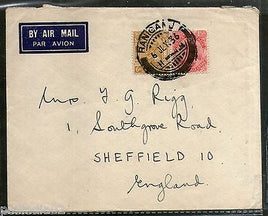 BY AIR MAIL
PAR AVION
RANIGANJ
Mrs. F. G. Rigg,
1, Southgrove Road,
SHEFFIELD 10
England.